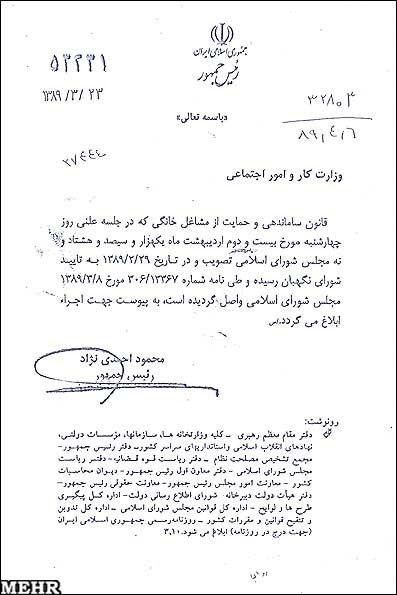 جمهوری اسلامی ایران
رئیس جمهور
۵۳۲۳۱
۱۳۸۹/۳/۲۳
۳۲۸۰۳
۸۹,۴,۶
«باسمه تعالی»
۲۷۴۴۴
وزارت کار و امور اجتماعی
قانون ساماندهی و حمایت از مشاغل خانگی که در جلسه علنی روز
چهارشنبه مورخ بیست و دوم اردیبهشت ماه یکهزار و سیصد و هشتاد و
نه مجلس شورای اسلامی تصویب و در تاریخ ۱۳۸۹/۲/۲۹ به تایید
شورای نگهبان رسیده و طی نامه شماره ۳۰۶/۱۳۳۶۷ مورخ ۱۳۸۹/۳/۸
مجلس شورای اسلامی واصل گردیده است، به پیوست جهت اجراء
ابلاغ می گردد.
محمود احمدی نژاد
رئیس جمهور
رونوشت:
دفتر مقام معظم رهبری – کلیه وزارتخانه ها، سازمانها، مؤسسات دولتی،
نهادهای انقلاب اسلامی واستانداریهای سراسر کشور– دفتر رئیس جمهور–
مجمع تشخیص مصلحت نظام – دفتر ریاست قوه قضائیه– دفتر ریاست
مجلس شورای اسلامی – دفتر معاون اول رئیس جمهور– دیوان محاسبات
کشور – معاونت امور مجلس رئیس جمهور– معاونت حقوقی رئیس جمهور–
دفتر هیأت دولت دبیرخانه شورای اطلاع رسانی دولت– اداره کل پیگیری
طرح ها و لوایح – اداره کل قوانین مجلس شورای اسلامی – اداره کل تدوین
و تنقیح قوانین و مقررات کشور – روزنامه رسمی جمهوری اسلامی ایران
(جهت درج در روزنامه) ابلاغ می شود.۳,۱۰
MEHR